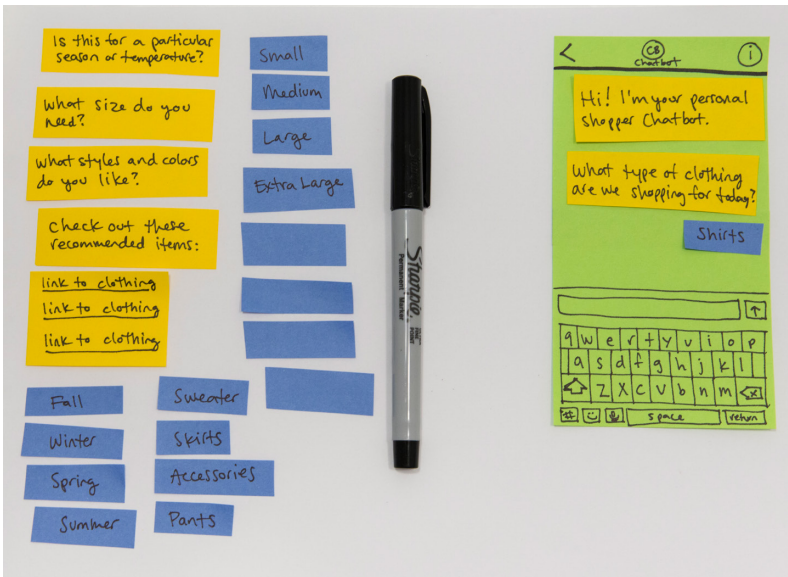 Is this for a particular
season or temperature?
What size do you
need?
What styles and colors
do you like?
Check out these
recommended items:
link to clothing
link to clothing
link to clothing
Small
Medium
Large
Extra Large
Fall
Winter
Spring
Summer
Sweater
Skirts
Accessories
Pants
Sharpie
Permanent Marker
FINE POINT
<
CB
Chatbot
i
Hi! I'm your personal
shopper Chatbot.
What type of clothing
are we shopping for today?
Shirts
q w e r t y u i o p
a s d f g h j k l
z x c v b n m
# space return